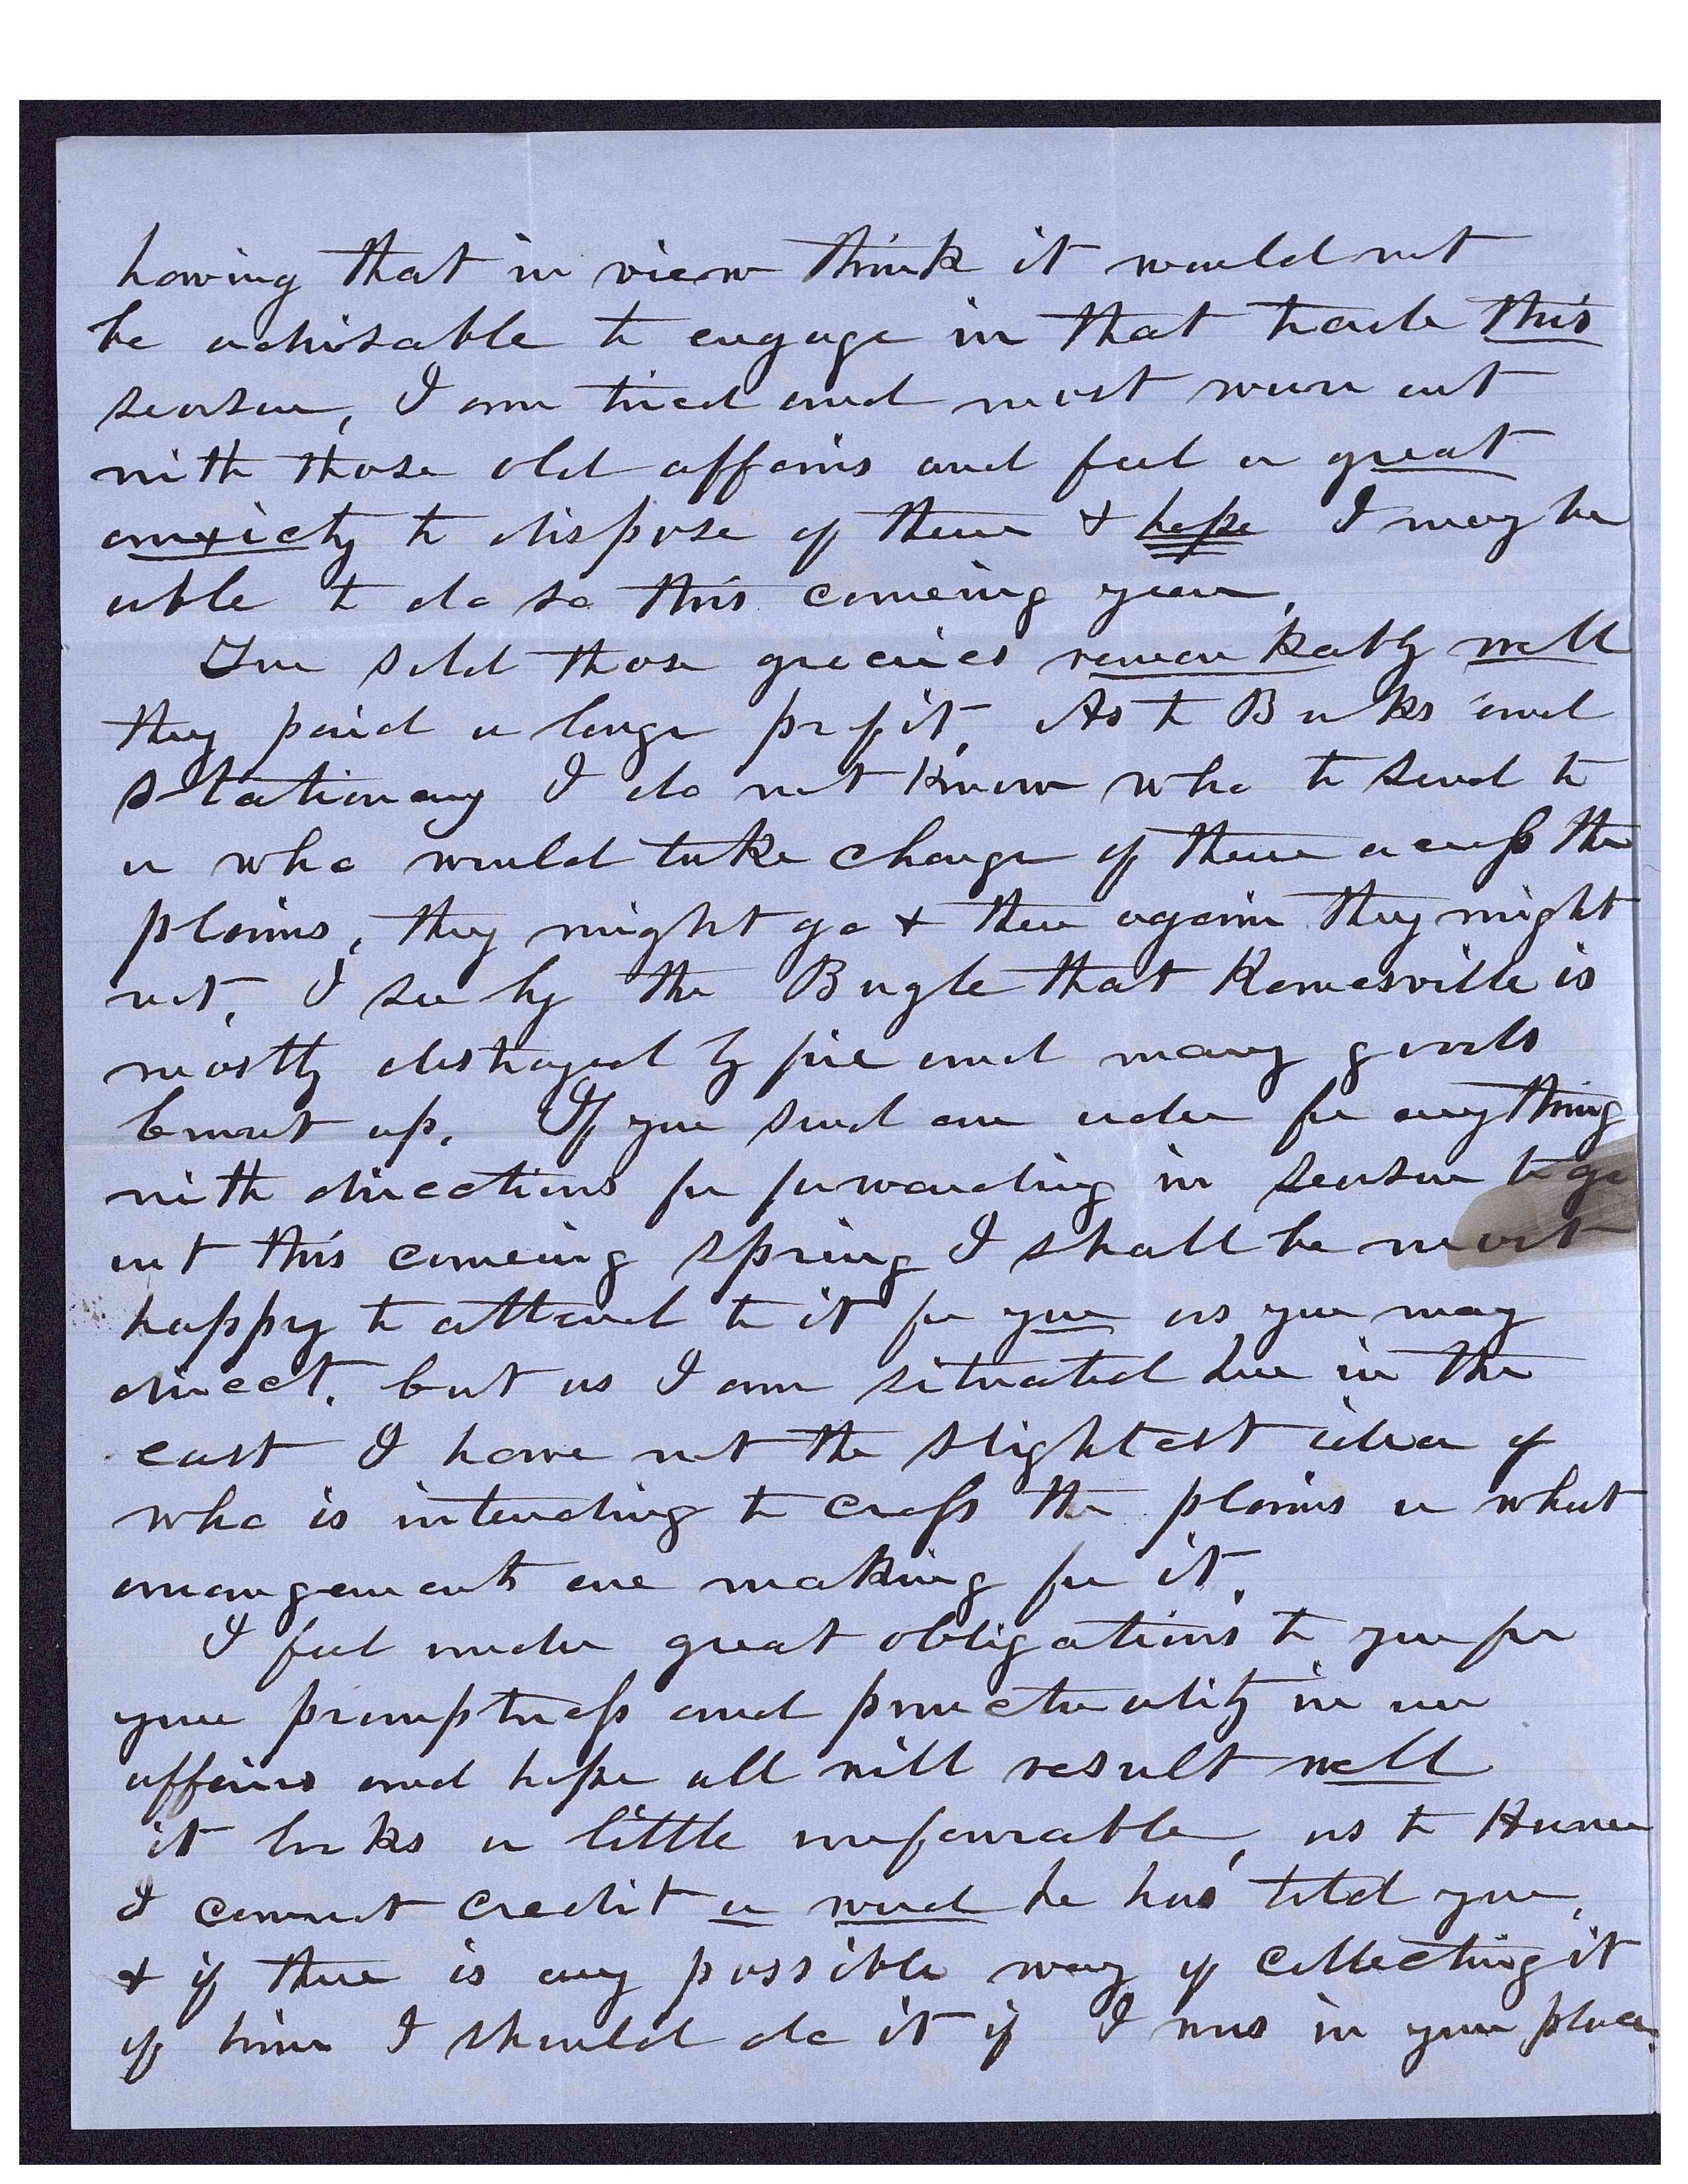 having that in view think it would not
be advisable to engage in that trade this
season, I am tired and most worn out
with those old affairs and feel a great
anxiety to dispose of them & hope I may be
able to do so this comeing year,
You sold those groceries remarkably well
they paid a large profit, As to Books and
stationary I do not know who to send to
or who would take charge of them across the
plains, they might go & then again they might
not, I see by the Bugle that Kanesville is
mostly destroyed by fire and many goods
burnt up. If you send an order for anything
with directions for forwarding in season to go
out this comeing spring I shall be most
happy to attend to it for you as you may
direct, but as I am situated here in the
east I have not the slightest idea of
who is intending to cross the plains or what
arrangements are making for it.
I feel under great obligations to you for
your promptness and punctuality in our
affairs and hope all will result well
it looks a little unfavourable, as to
I cannot credit a word he has told you,
& if there is any possible way of collecting it
of him I should do it if I was in your place.